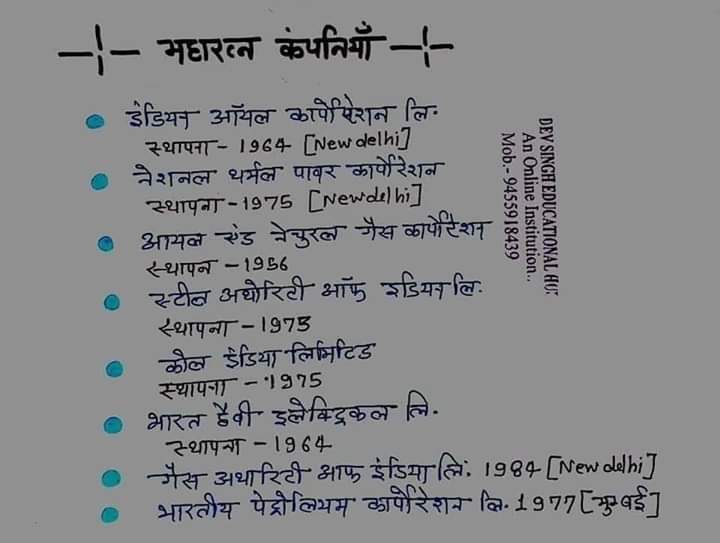 महारत्न कंपनियाँ
इंडियन ऑयल कार्पोरेशन लि.
स्थापना - 1964 [New delhi]
नेशनल थर्मल पावर कार्पोरेशन
स्थापना - 1975 [New delhi]
आयल एंड नेचुरल गैस कार्पोरेशन
स्थापना - 1956
स्टील अथोरिटी ऑफ इंडिया लि.
स्थापना - 1973
कोल इंडिया लिमिटिड
स्थापना - 1975
भारत हैवी इलेक्ट्रिकल लि.
स्थापना - 1964
गैस अथारिटी आफ इंडिया लि. 1984 [New delhi]
भारतीय पेट्रोलियम कार्पोरेशन लि. 1977 [मुम्बई]
DEV SINGH EDUCATIONAL
An Online Institution..
Mob.- 9455918439